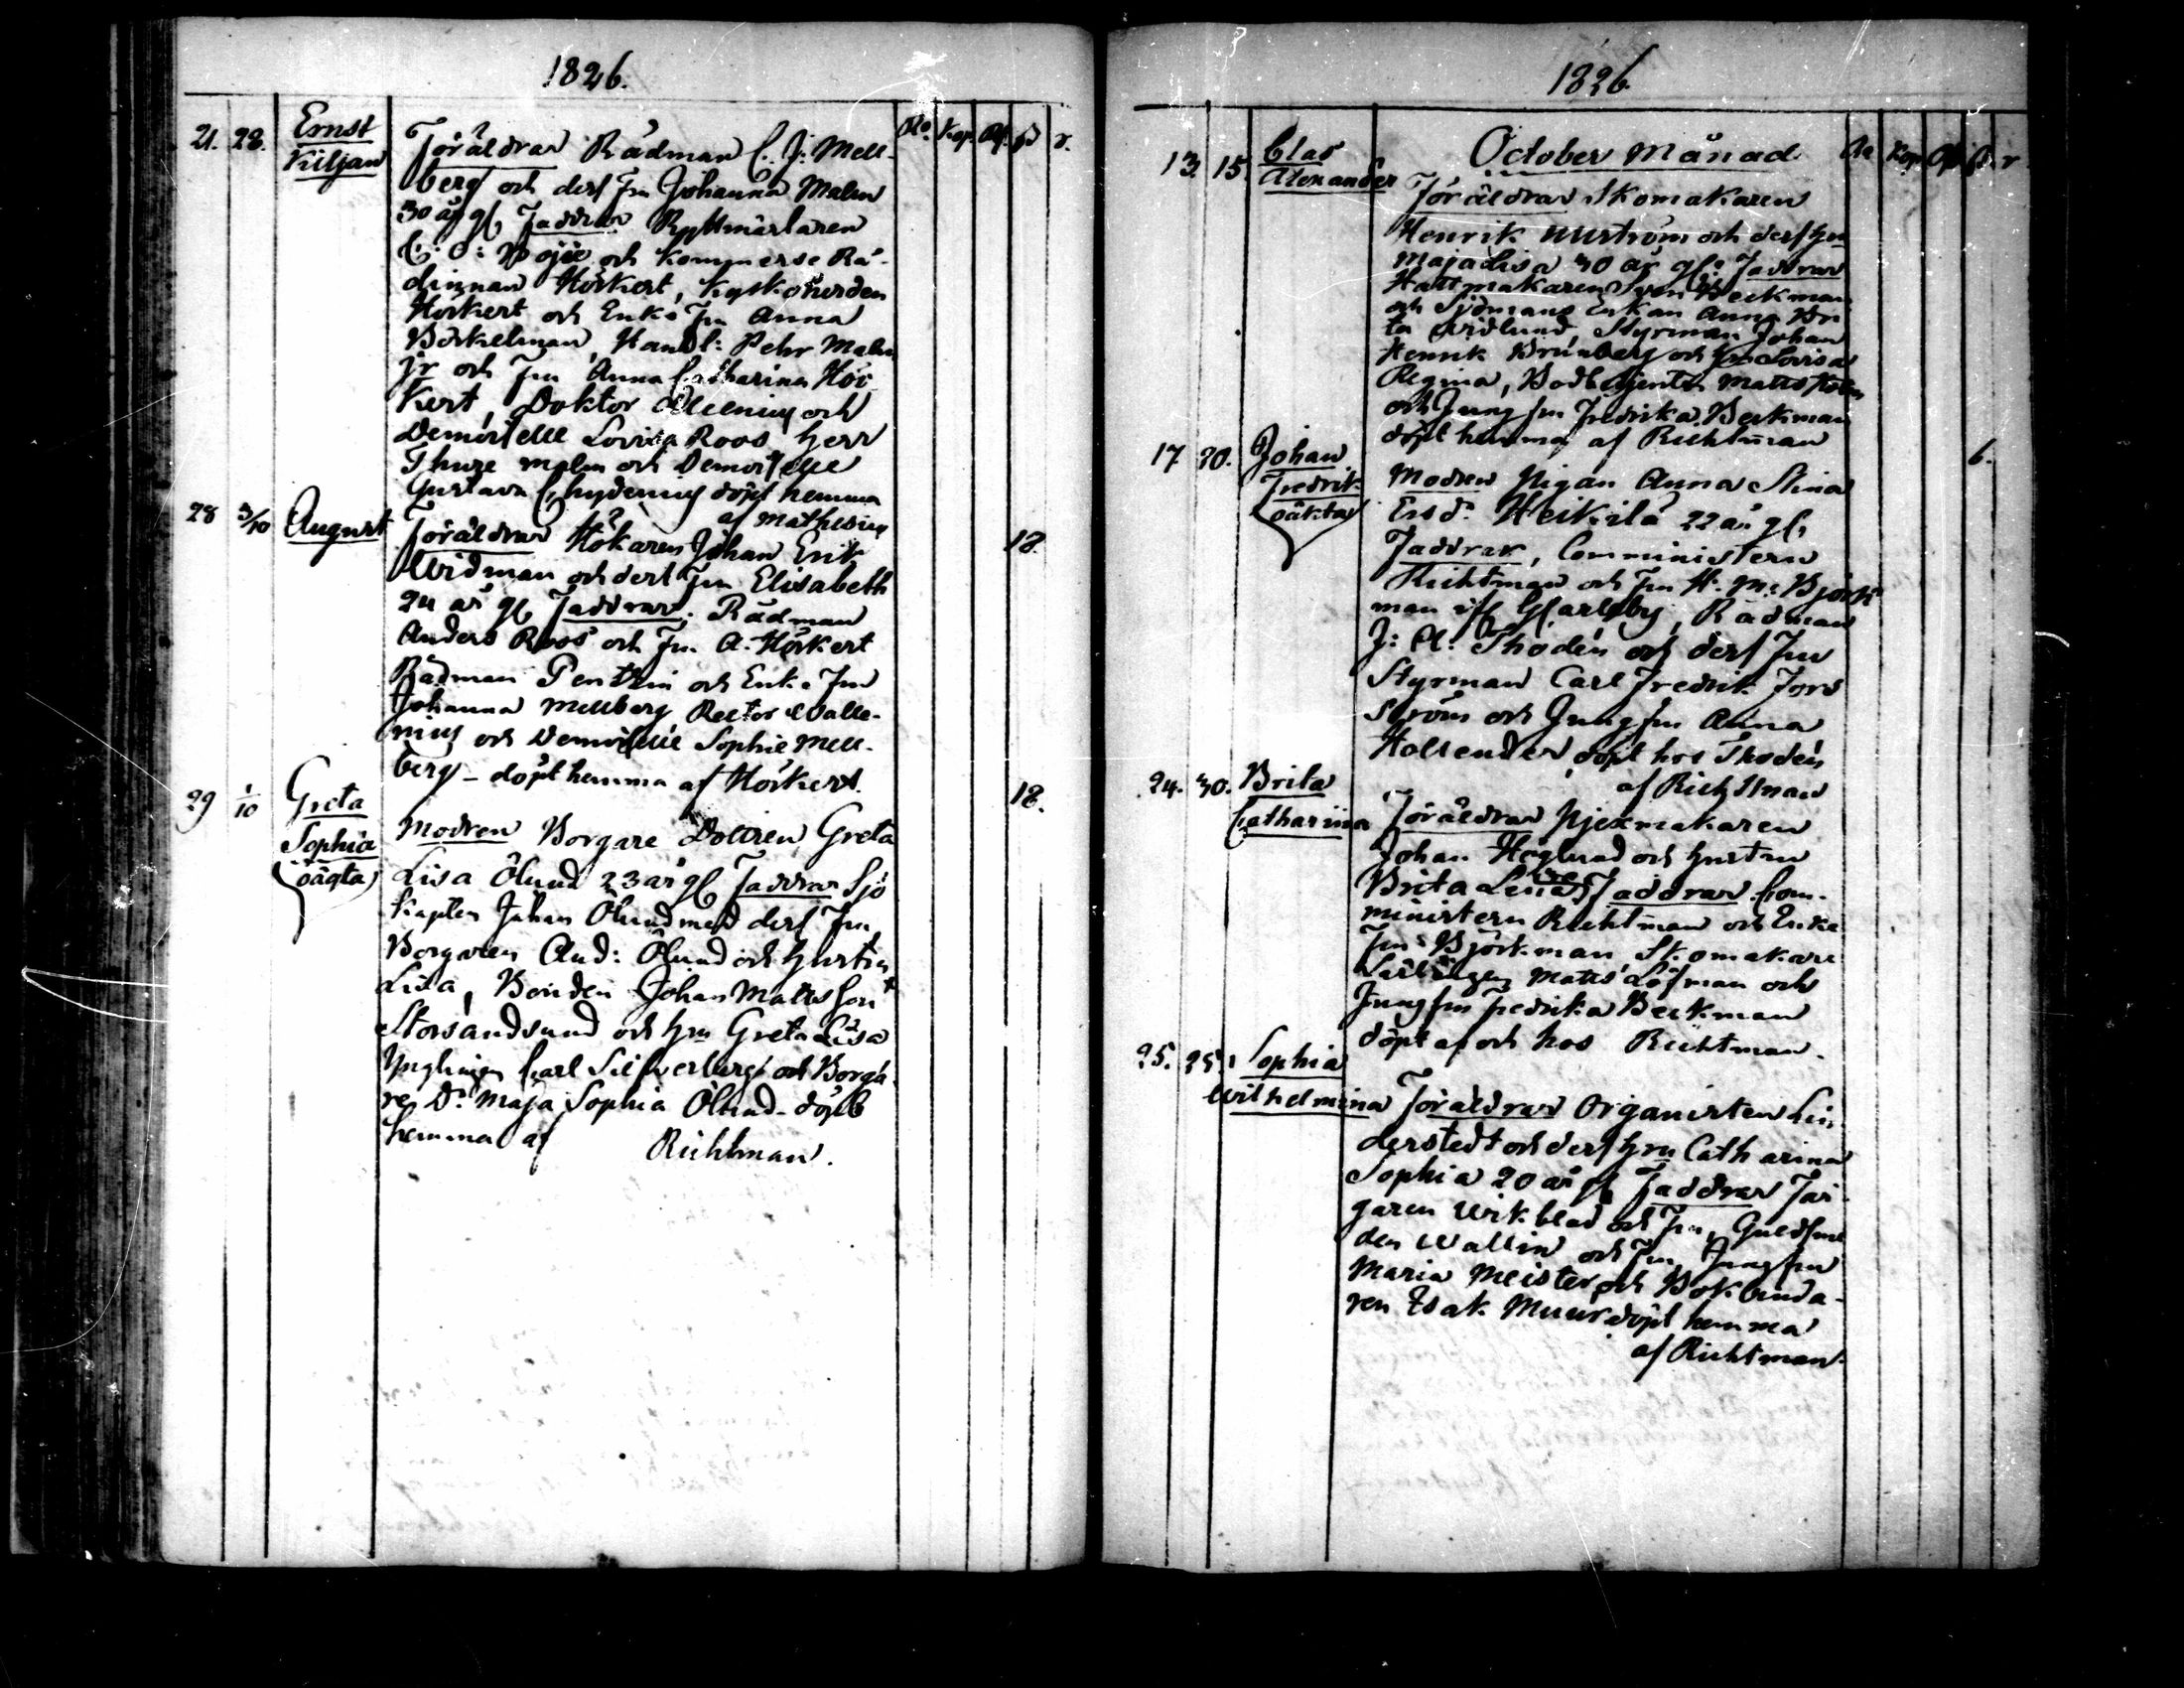 1826.
Ao. Kop. Af. D r.
21. 28. Ernst Kiljan
Föräldrar Rådman C. J: Mell-
berg och dess Fru Johanna Malm
30 år gl Faddrar Ryttmästaren
C: O: och Kommerse Rå-
dinnan Hörkert, Kyrkoherden
Hörkert och Enke Fru Anna
Börkelman, Handl: Pehr Malm
jr och Fru Anna Catharina Hör
kert, Doktor och
Demoiselle Lovisa Roos, Herr
Thure Malm och Demoiselle
Gustava Chydenius döpt hemma
af Mathesius
28 3/10 August
Föräldrar Hökaren Johan Erik 18.
Widman och dess Fru Elisabeth
24 år gl Faddrar: Rådman
Anders Roos och Fru A. Hörkert
Rådman Pentzin och Enke Fru
Johanna Mellberg, Rector Walle-
nius och Demoiselle Sophie Mell-
berg - döpt hemma af Hörkert.
29 1/10 Greta Sophia oägta 18.
Modren Borgare Dottren Greta
Lisa Ölund 23 år gl Faddrar Sjö
Kapten Johan Ölund med dess Fru,
Borgaren And: Ölund och Hustru
Lisa, Bonden Johan Matts Son
Storsandsund och Hru Greta Lisa
Ynglingen Carl Silfverberg och Borga
re D:r Maja Sophia Ölund - döpt
hemma af Richtman.
1826.
October Månad Ao Kop Af D. r
13. 15. Clas Alexander
Föräldrar Skomakaren
Henrik Murström och dess Hru
Maja Lisa 30 år gl: Faddrar
Hattmakaren Sven Beckman
och Sjömans Enkan Anna Bri
ta Widlund, Styrman Johan
Henrik Brunberg och Hru Lovisa
Regina, Bodbetjenten Matts
och Jungfru Fredrika Beckman
döpt hemma af Richtman
17 30. Johan Fredrik oäkta 6.
Modren Pigan Anna Stina
Ersd:r Heikilä 22 år gl,
Faddrar, Comministern
Richtman och Fru H. M: Björk
man ifr G:Carleby, Rådman
J: A: Thodén och dess Fru
Styrman Carl Fredrik Fors
ström och Jungfru Anna
Hollender, döpt hos Thodén
af Richtman
24. 30. Brita Catharina
Föräldrar Pjexmakaren
Johan Höglund och Hustru
Brita Lena Faddrar Com-
ministern Richtman och Enke
Fru Björkman Skomakare
Lärlingen Matts Löfman och
Jungfru Fredrika Beckman
döpt af och hos Richtman.
25. 25. Sophia Wilhelmina
Föräldrar Organisten Lin
derstedt och dess Hru Catharina
Sophia 20 år gl Faddrar Fär
garen Wikblad och Fru, Guldsme
den Wallin och Fru, Jungfru
Maria Meister och Bokbinda-
ren Isak Muur döpt hemma
af Richtman.